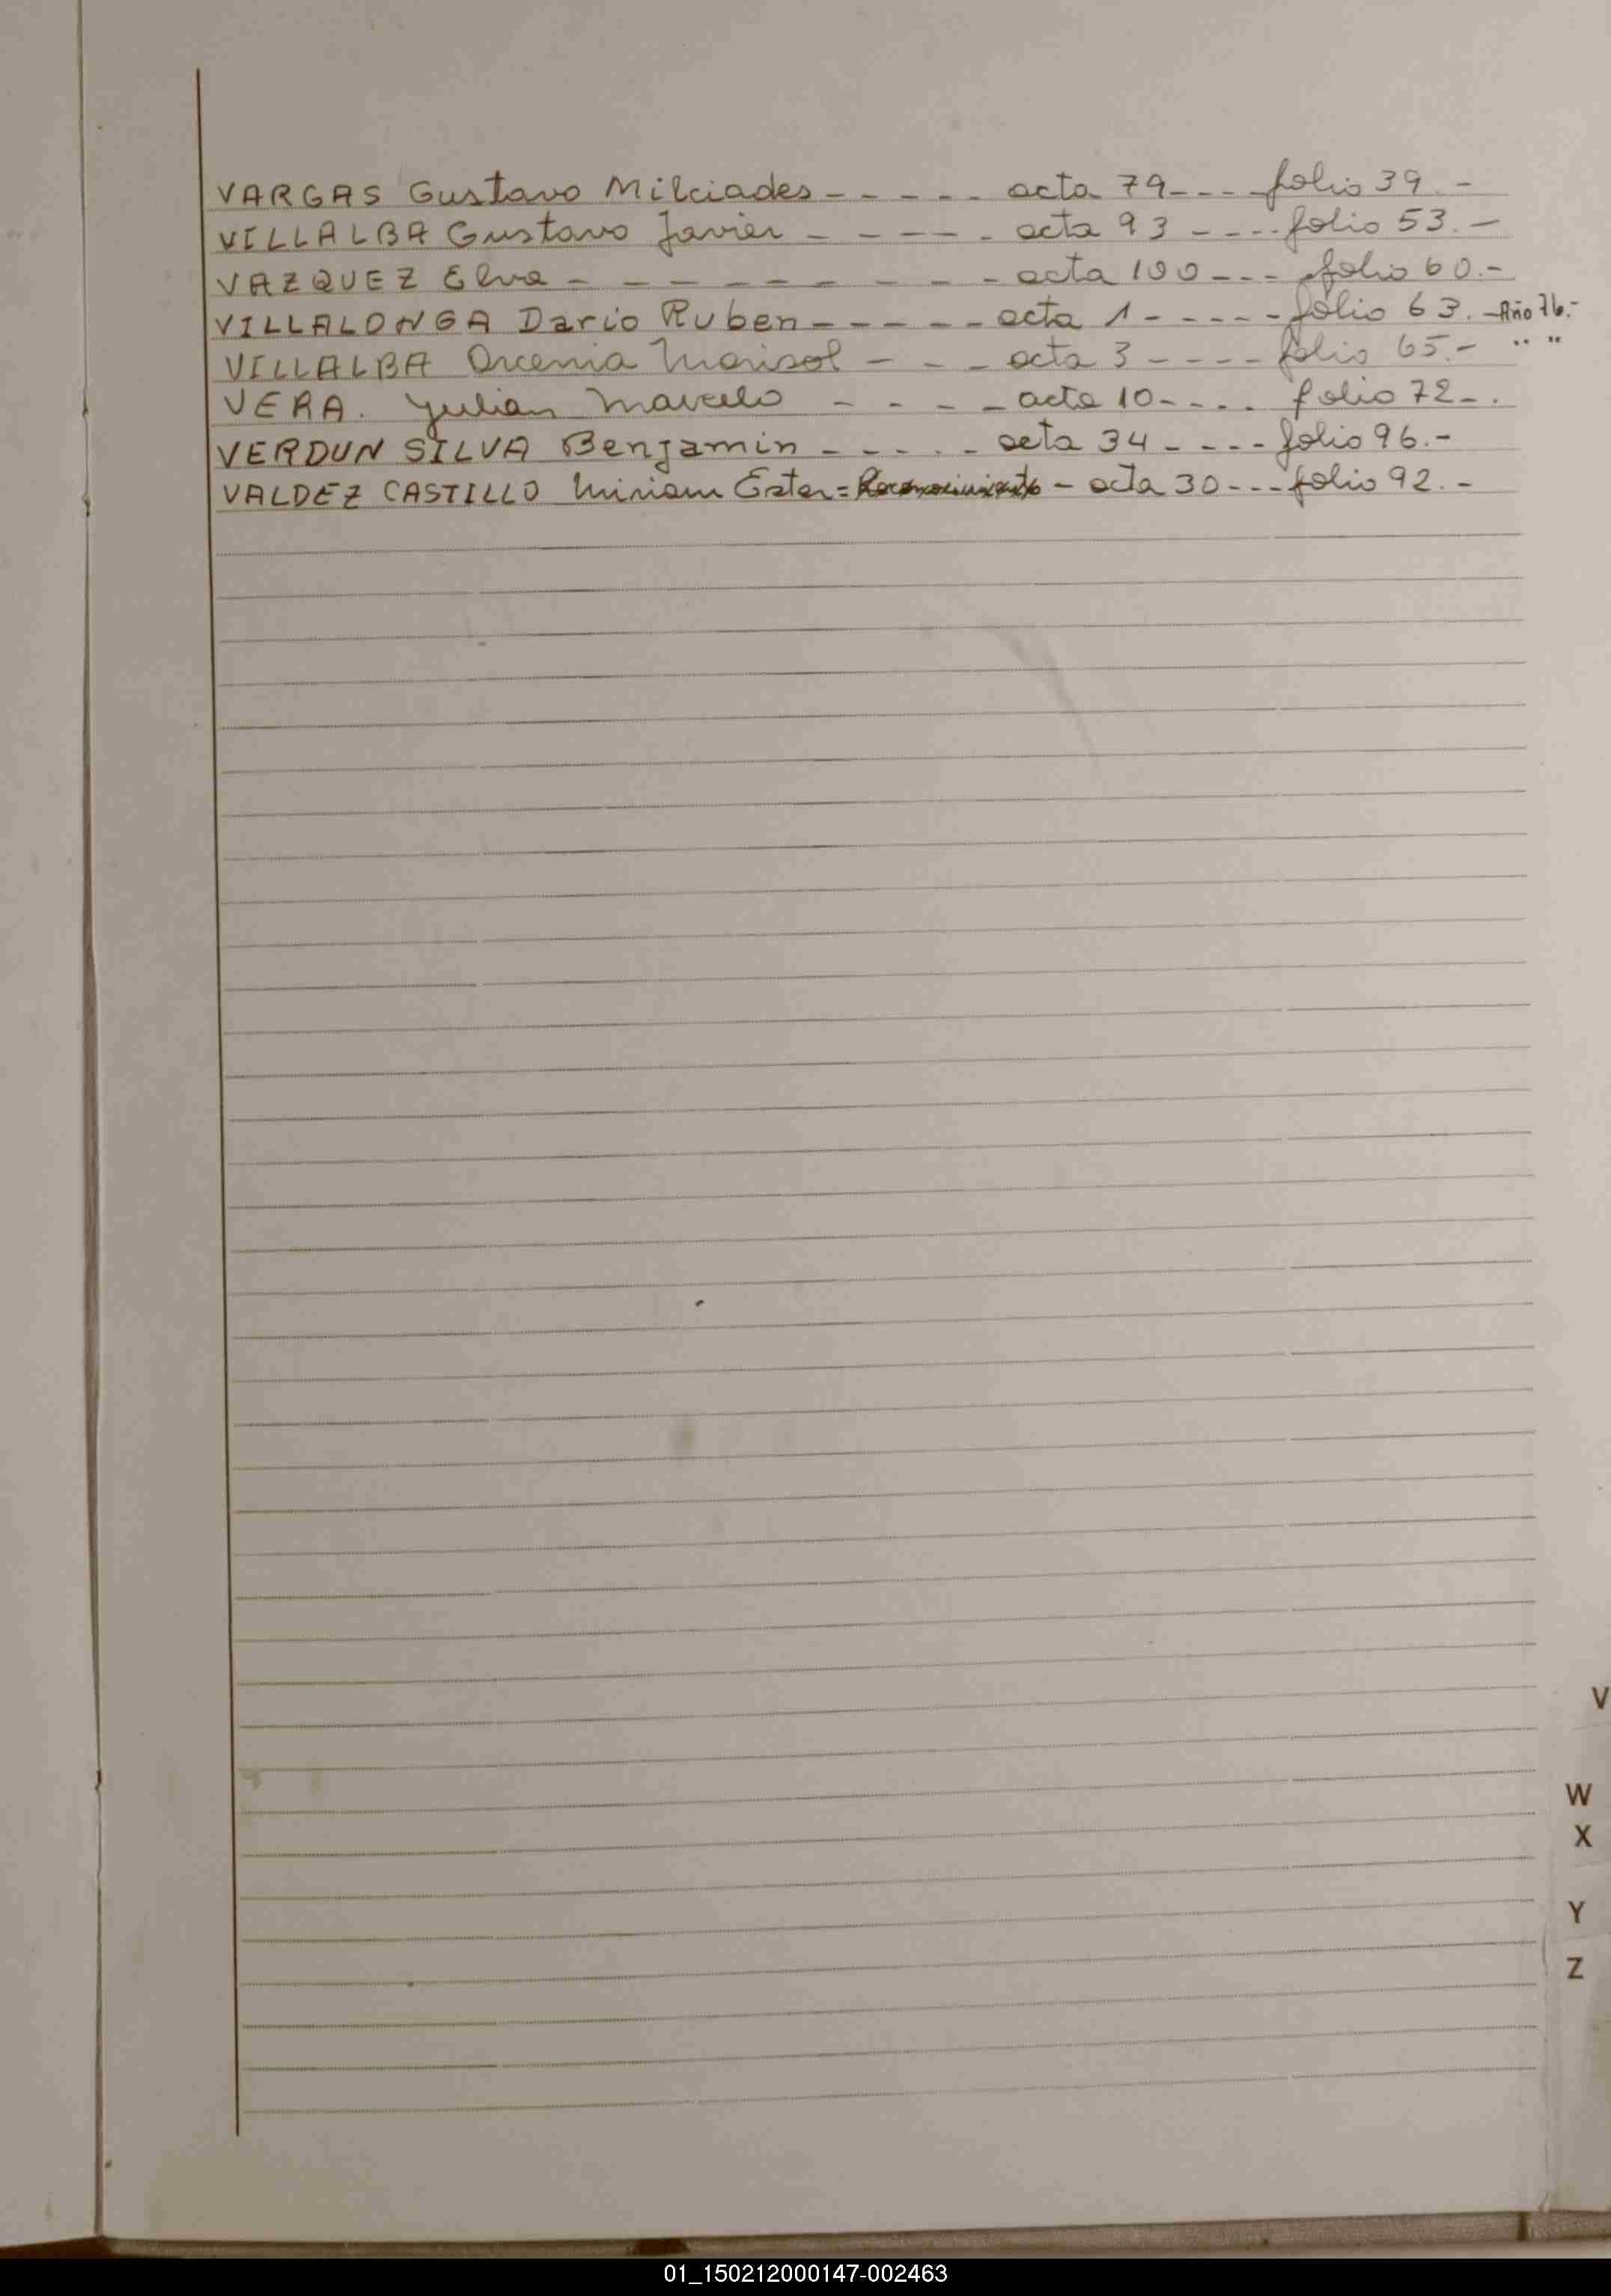 VARGAS Gustavo Milciades - - - - - acta 79 - - - - folio 39. -
VILLALBA Gustavo Javier - - - - - acta 93 - - - - folio 53. -
VAZQUEZ Elva - - - - - - - - - acta 100 - - - folio 60. -
VILLALONGA Dario Ruben - - - - - acta 1 - - - - - folio 63. - Año 76. -
VILLALBA Marisol - - - acta 3 - - - - folio 65. - " "
VERA. Julian Marcelo - - - - acta 10 - - - - folio 72 - .
VERDUN SILVA Benjamin - - - - - acta 34 - - - - folio 96. -
VALDEZ CASTILLO Miriam Ester = Reconocimiento - acta 30 - - - folio 92. -
V
W
X
Y
Z
01_150212000147-002463